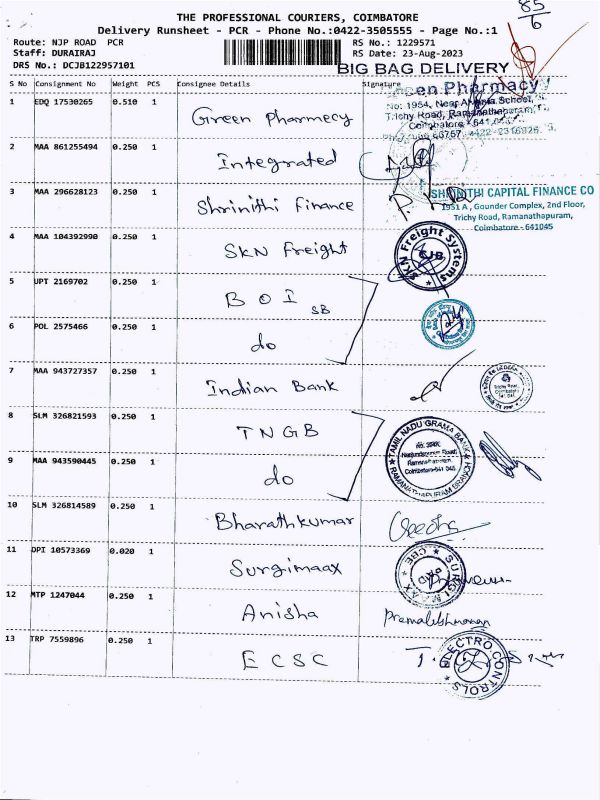 85
6
THE PROFESSIONAL COURIERS, COIMBATORE
Delivery Runsheet - PCR - Phone No.:0422-3505555 - Page No.:1
Route: NJP ROAD PCR
RS No.: 1229571
Staff: DURAIRAJ
RS Date: 23-Aug-2023
DRS No.: DCJB122957101
BIG BAG DELIVERY
S No Consignment No Weight PCS Consignee Details Signature
1 EDQ 17530265 0.510 1 Green Pharmecy
Pharmacy
No: 1954, Near School,
Trichy Road, Ramanathapuram,
Coimbatore - 641
2 MAA 861255494 0.250 1 Integrated
3 MAA 296628123 0.250 1 Shrinithi Finance
SHRINITHI CAPITAL FINANCE CO
1951 A , Gounder Complex, 2nd Floor,
Trichy Road, Ramanathapuram,
Coimbatore - 641045
4 MAA 104392990 0.250 1 SKN Freight
SKN Freight Systems
CJB
5 UPT 2169702 0.250 1 BOI SB
6 POL 2575466 0.250 1 do
7 MAA 943727357 0.250 1 Indian Bank
8 SLM 326821593 0.250 1 TNGB
TAMIL NADU GRAMA BANK
Ramanathapuram
Coimbatore-641 045
RAMANATHAPURAM BRANCH
9 MAA 943590445 0.250 1 do
10 SLM 326814589 0.250 1 Bharathkumar Geetha
11 DPI 10573369 0.020 1 Surgimaax
SURGIMAAX
CBE
12 MTP 1247044 0.250 1 Anisha
13 TRP 7559896 0.250 1 ECSC
ELECTRO CONTROLS